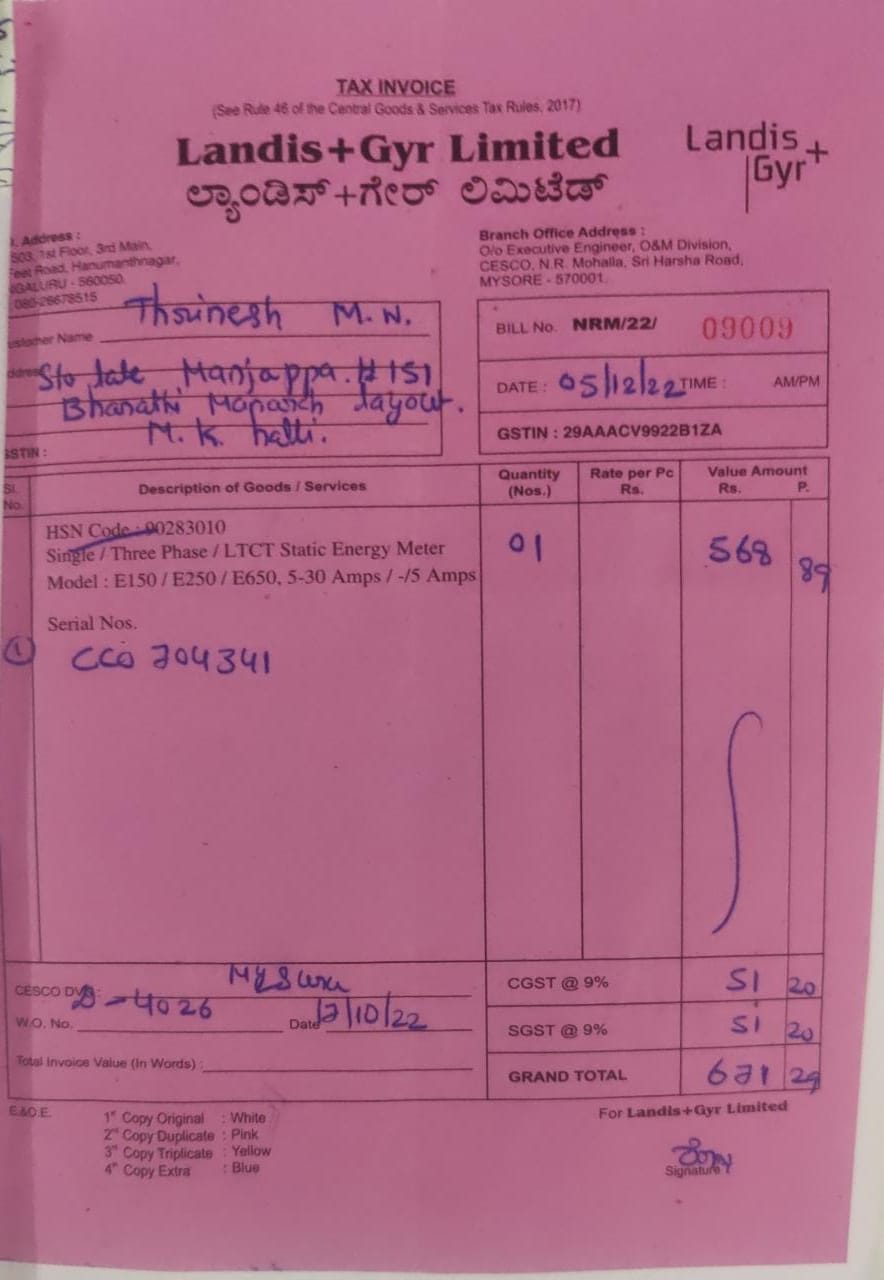 TAX INVOICE
(See Rule 46 of the Central Goods & Services Tax Rules, 2017)
Landis+Gyr Limited
ಲ್ಯಾಂಡಿಸ್+ಗೇರ್ ಲಿಮಿಟೆಡ್
Landis
Gyr+
. Address :
503, 1st Floor, 3rd Main,
eet Road, Hanumanthnagar,
GALURU - 560050.
080-26678515
Branch Office Address :
O/o Executive Engineer, O&M Division,
CESCO, N.R. Mohalla, Sri Harsha Road,
MYSORE - 570001.
ustomer Name Thrinesh M.N.
ddress S/o late Manjappa. #151
Bharathi layout.
M.K. halli.
GSTIN :
BILL No. NRM/22/ 09009
DATE : 05/12/22 TIME : AM/PM
GSTIN : 29AAACV9922B1ZA
Sl. No. Description of Goods / Services Quantity (Nos.) Rate per Pc Rs. Value Amount Rs. P.
HSN Code : 90283010
Single / Three Phase / LTCT Static Energy Meter 01 568 89
Model : E150 / E250 / E650, 5-30 Amps / -/5 Amps
Serial Nos.
① CCO 704341
CESCO DVN: Mysuru
D-4026
W.O. No. Date 12/10/22
Total Invoice Value (In Words) :
CGST @ 9% 51 20
SGST @ 9% 51 20
GRAND TOTAL 671 29
E.&O.E.
1st Copy Original : White
2nd Copy Duplicate : Pink
3rd Copy Triplicate : Yellow
4th Copy Extra : Blue
For Landis+Gyr Limited
Signature